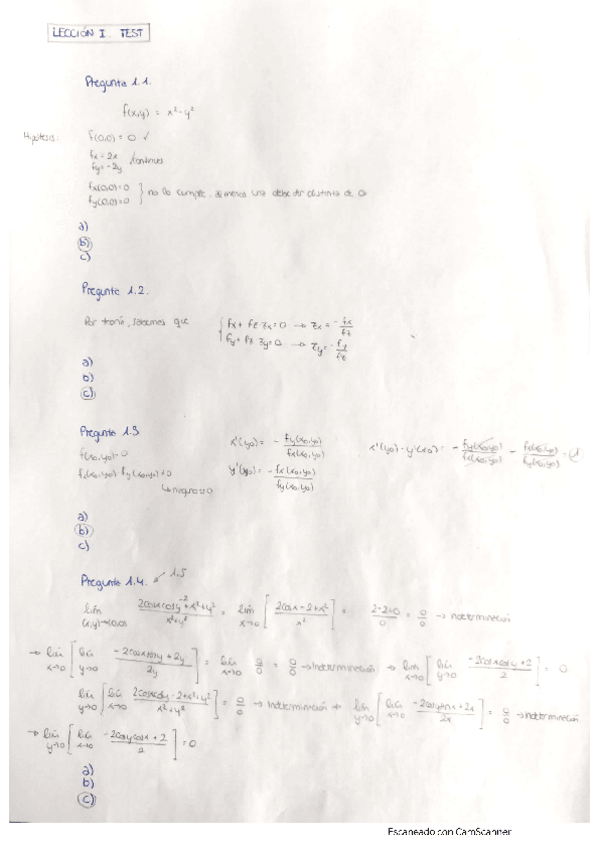 LECCIÓN I. TEST
Pregunta 1.1.
f(x,y) = x²-y²
Hipótesis: f(0,0) = 0 ✓
fx = 2x
fy = -2y continues
fx(0,0)=0
fy(0,0)=0 } no lo cumple, al menos una debe ser distinta de 0
a)
b)
c)
Pregunta 1.2.
Por teoría, sabemos que { fx + fz zx = 0 → zx = -fx/fz
fy + fz zy = 0 → zy = -fy/fz
a)
b)
c)
Pregunta 1.3
f(x₀,y₀)=0
fx(x₀,y₀)·fy(x₀,y₀)≠0
x'(y₀) = - fy(x₀,y₀)/fx(x₀,y₀)
y'(x₀) = - fx(x₀,y₀)/fy(x₀,y₀)
x'(y₀)·y'(x₀) =
a)
b)
c)
Pregunta 1.4. 1.5
lim (x,y)→(0,0) 2cosxcosy-2+x²+y²/x²+y² = lim x→0 [2cosx-2+x²/x²] = 2-2+0/0 = 0/0 → indeterminación
→ lim x→0 [lim y→0 -2cosxseny+2y/2y] = lim x→0 0/0 = 0/0 → Indeterminación → lim x→0 [lim y→0 -2cosxcosy+2/2] = 0
lim y→0 [lim x→0 2cosxcosy-2+x²+y²/x²+y²] = 0/0 → Indeterminación → lim y→0 [lim x→0 -2cosysenx+2x/2x] = 0/0 → indeterminación
→ lim y→0 [lim x→0 -2cosycosx+2/2] = 0
a)
b)
c)
Escaneado con CamScanner